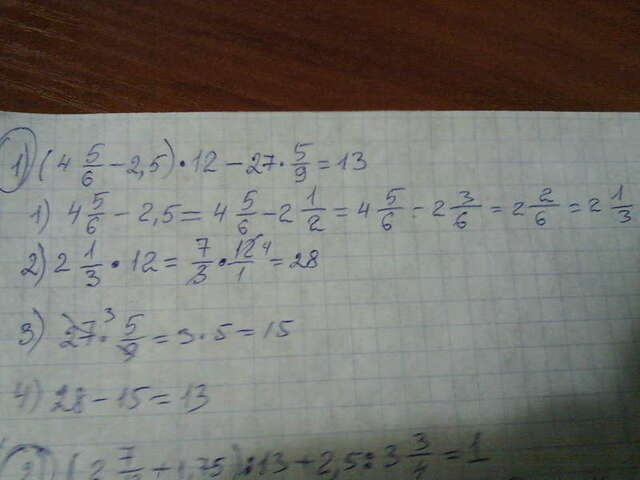 1) (4 5/6 - 2,5) · 12 - 27 · 5/9 = 13
1) 4 5/6 - 2,5 = 4 5/6 - 2 1/2 = 4 5/6 - 2 3/6 = 2 2/6 = 2 1/3
2) 2 1/3 · 12 = 7/3 · 12 4/1 = 28
3) 27 3 · 5/9 = 3 · 5 = 15
4) 28 - 15 = 13
+ 1,75) : 13 + 2,5 : 3 3/4 = 1